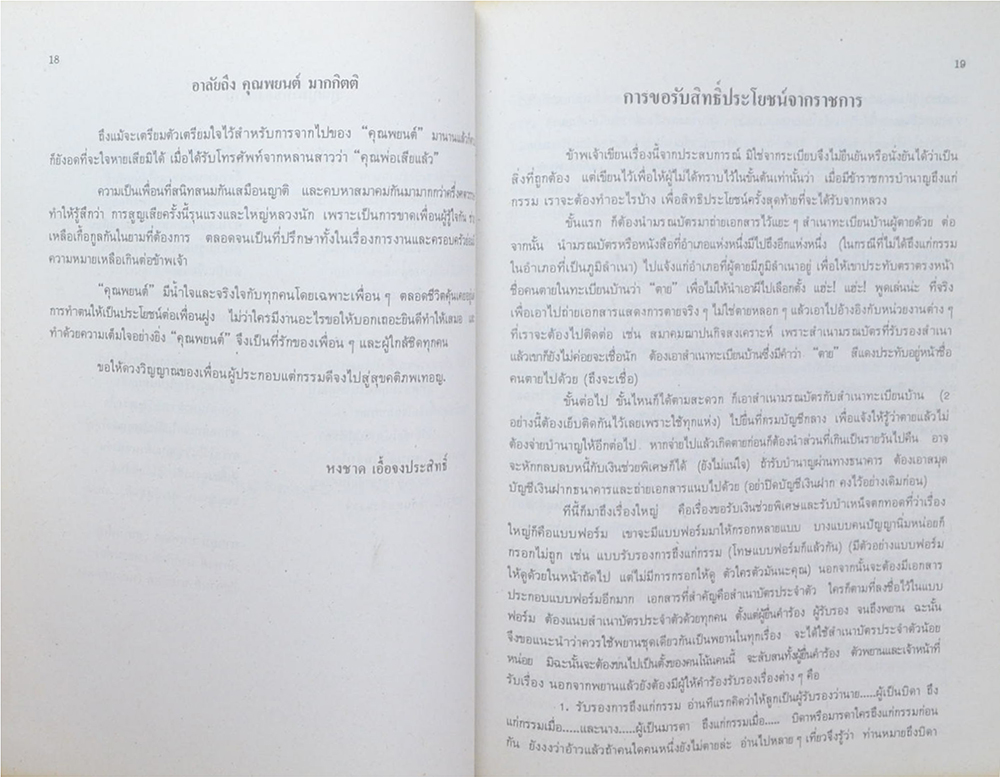 18
อาลัยถึง คุณพยนต์ มากกิตติ
ถึงแม้จะเตรียมตัวเตรียมใจไว้สำหรับการจากไปของ "คุณพยนต์" มานานแล้วก็ตาม
ก็ยังอดที่จะใจหายเสียมิได้ เมื่อได้รับโทรศัพท์จากหลานสาวว่า "คุณพ่อเสียแล้ว"
ความเป็นเพื่อนที่สนิทสนมกันเสมือนญาติ และคบหาสมาคมกันมามากกว่าครึ่ง
ทำให้รู้สึกว่า การสูญเสียครั้งนี้รุนแรงและใหญ่หลวงนัก เพราะเป็นการขาดเพื่อนผู้รู้ใจกัน
เหลือเกื้อกูลกันในยามที่ต้องการ ตลอดจนเป็นที่ปรึกษาทั้งในเรื่องการงานและครอบครัว
ความหมายเหลือเกินต่อข้าพเจ้า
"คุณพยนต์" มีน้ำใจและจริงใจกับทุกคนโดยเฉพาะเพื่อน ๆ ตลอดชีวิต
การทำตนให้เป็นประโยชน์ต่อเพื่อนฝูง ไม่ว่าใครมีงานอะไรขอให้บอกเถอะยินดีทำให้เสมอ
ทำด้วยความเต็มใจอย่างยิ่ง "คุณพยนต์" จึงเป็นที่รักของเพื่อน ๆ และผู้ใกล้ชิดทุกคน
ขอให้ดวงวิญญาณของเพื่อนผู้ประกอบแต่กรรมดีจงไปสู่สุขคติภพเทอญ.
หงชาด เอื้อจงประสิทธิ์
19
การขอรับสิทธิ์ประโยชน์จากราชการ
ข้าพเจ้าเขียนเรื่องนี้จากประสบการณ์ มิใช่จากระเบียบจึงไม่ยืนยันหรือนั่งยันได้ว่าเป็น
สิ่งที่ถูกต้อง แต่เขียนไว้เพื่อให้ผู้ไม่ได้ทราบไว้ในขั้นต้นเท่านั้นว่า เมื่อมีข้าราชการบำนาญถึงแก่
กรรม เราจะต้องทำอะไรบ้าง เพื่อสิทธิประโยชน์ครั้งสุดท้ายที่จะได้รับจากหลวง
ขั้นแรก ก็ต้องนำมรณบัตรมาถ่ายเอกสารไว้แยะ ๆ สำเนาทะเบียนบ้านผู้ตายด้วย ต่อ
จากนั้น นำมรณบัตรหรือหนังสือที่อำเภอแห่งหนึ่งมีไปถึงอีกแห่งหนึ่ง (ในกรณีที่ไม่ได้ถึงแก่กรรม
ในอำเภอที่เป็นภูมิลำเนา) ไปแจ้งแก่อำเภอที่ผู้ตายมีภูมิลำเนาอยู่ เพื่อให้เขาประทับตราตรงหน้า
ชื่อคนตายในทะเบียนบ้านว่า "ตาย" เพื่อไม่ให้นำเอาผีไปเลือกตั้ง แฮ่ะ! แฮ่ะ! พูดเล่นน่ะ ที่จริง
เพื่อเอาไปถ่ายเอกสารแสดงการตายจริง ๆ ไม่ใช่ตายหลอก ๆ แล้วเอาไปอ้างอิงกับหน่วยงานต่าง ๆ
ที่เราจะต้องไปติดต่อ เช่น สมาคมฌาปนกิจสงเคราะห์ เพราะสำเนามรณบัตรที่รับรองสำเนา
แล้วเขาก็ยังไม่ค่อยจะเชื่อนัก ต้องเอาสำเนาทะเบียนบ้านซึ่งมีคำว่า "ตาย" สีแดงประทับอยู่หน้าชื่อ
คนตายไปด้วย (ถึงจะเชื่อ)
ขั้นต่อไป ขั้นไหนก็ได้ตามสะดวก ก็เอาสำเนามรณบัตรกับสำเนาทะเบียนบ้าน (2
อย่างนี้ต้องเย็บติดกันไว้เลยเพราะใช้ทุกแห่ง) ไปยื่นที่กรมบัญชีกลาง เพื่อแจ้งให้รู้ว่าตายแล้วไม่
ต้องจ่ายบำนาญให้อีกต่อไป หากจ่ายไปแล้วเกิดตายก่อนก็ต้องนำส่วนที่เกินเป็นรายวันไปคืน อาจ
จะหักกลบลบหนี้กับเงินช่วยพิเศษก็ได้ (ยังไม่แน่ใจ) ถ้ารับบำนาญผ่านทางธนาคาร ต้องเอาสมุด
บัญชีเงินฝากธนาคารและถ่ายเอกสารแนบไปด้วย (อย่าปิดบัญชีเงินฝาก คงไว้อย่างเดิมก่อน)
ทีนี้ก็มาถึงเรื่องใหญ่ คือเรื่องขอรับเงินช่วยพิเศษและรับบำเหน็จตกทอดที่ว่าเรื่อง
ใหญ่ก็คือแบบฟอร์ม เขาจะมีแบบฟอร์มมาให้กรอกหลายแบบ บางแบบคนปัญญานิ่มหน่อยก็
กรอกไม่ถูก เช่น แบบรับรองการถึงแก่กรรม (โทษแบบฟอร์มก็แล้วกัน) (มีตัวอย่างแบบฟอร์ม
ให้ดูด้วยในหน้าถัดไป แต่ไม่มีการกรอกให้ดู ตัวใครตัวมันนะคุณ) นอกจากนั้นจะต้องมีเอกสาร
ประกอบแบบฟอร์มอีกมาก เอกสารที่สำคัญคือสำเนาบัตรประจำตัว ใครก็ตามที่ลงชื่อไว้ในแบบ
ฟอร์ม ต้องแนบสำเนาบัตรประจำตัวด้วยทุกคน ตั้งแต่ผู้ยื่นคำร้อง ผู้รับรอง จนถึงพยาน ฉะนั้น
จึงขอแนะนำว่าควรใช้พยานชุดเดียวกันเป็นพยานในทุกเรื่อง จะได้ใช้สำเนาบัตรประจำตัวน้อย
หน่อย มิฉะนั้นจะต้องขนไปเป็นตั้งของคนโน้นคนนี้ จะสับสนทั้งผู้ยื่นคำร้อง ตัวพยานและเจ้าหน้าที่
รับเรื่อง นอกจากพยานแล้วยังต้องมีผู้ให้คำร้องรับรองเรื่องต่าง ๆ คือ
1. รับรองการถึงแก่กรรม อ่านทีแรกคิดว่าให้ลูกเป็นผู้รับรองว่านาย.....ผู้เป็นบิดา ถึง
แก่กรรมเมื่อ.....และนาง.....ผู้เป็นมารดา ถึงแก่กรรมเมื่อ..... บิดาหรือมารดาใครถึงแก่กรรมก่อน
กัน ยังงงว่าอ้าวแล้วถ้าคนใดคนหนึ่งยังไม่ตายล่ะ อ่านไปหลาย ๆ เที่ยวจึงรู้ว่า ท่านหมายถึงบิดา